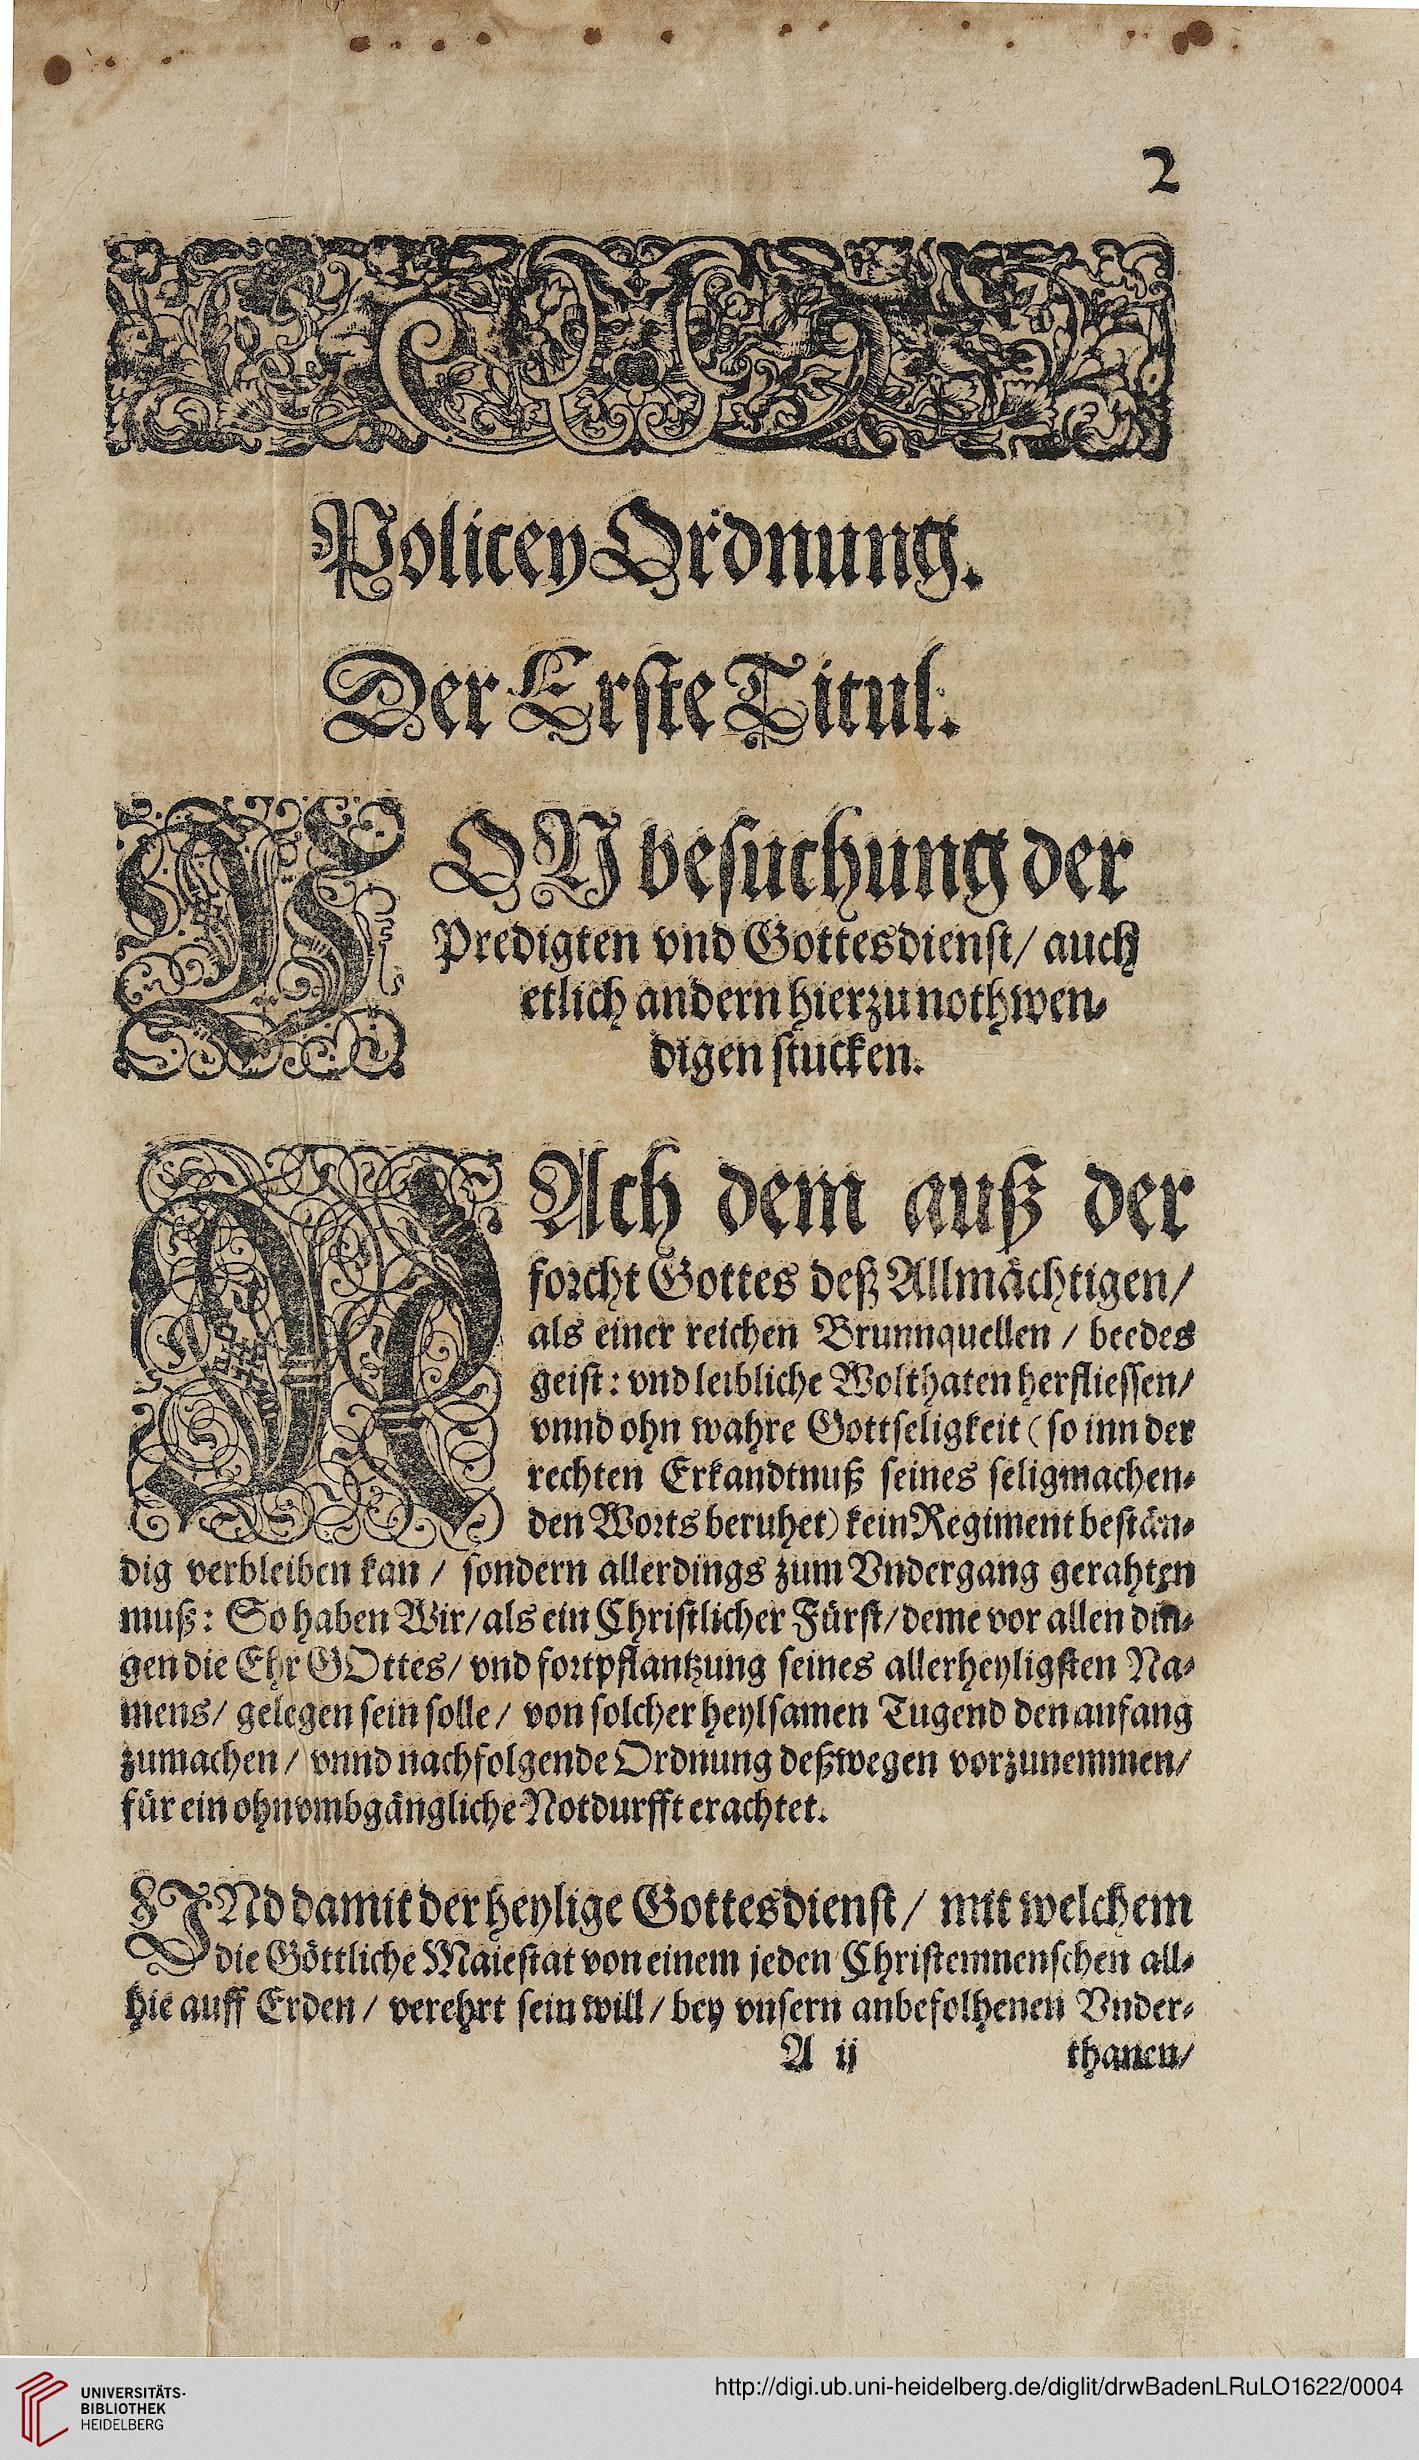 2
Policey Ordnung.
Der Erste Titul.
VON besuchung der
Predigten vnd Gottesdienst/ auch
etlich andern hierzu nothwen-
digen stucken.
NAch dem auß der
forcht Gottes deß Allmächtigen/
als einer reichen Brunnquellen / beedes
geist: vnd leibliche Wolthaten herfliessen/
vnnd ohn wahre Gottseligkeit (so inn der
rechten Erkandtnuß seines seligmachen-
den Worts beruhet) kein Regiment bestän-
dig verbleiben kan / sondern allerdings zum Vndergang gerahten
muß: So haben Wir/ als ein Christlicher Fürst/ deme vor allen din-
gen die Ehr GOttes/ vnd fortpflantzung seines allerheyligsten Na-
mens/ gelegen sein solle / von solcher heylsamen Tugend den anfang
zumachen / vnnd nachfolgende Ordnung deßwegen vorzunemmen/
für ein ohnvmbgängliche Notdurfft erachtet.
VNd damit der heylige Gottesdienst / mit welchem
die Göttliche Maiestat von einem jeden Christenmenschen all-
hie auff Erden / verehrt sein will / bey vnsern anbefolhenen Vnder-
A ij thanen/
UNIVERSITÄTS-
BIBLIOTHEK
HEIDELBERG
http://digi.ub.uni-heidelberg.de/diglit/drwBadenLRuLO1622/0004